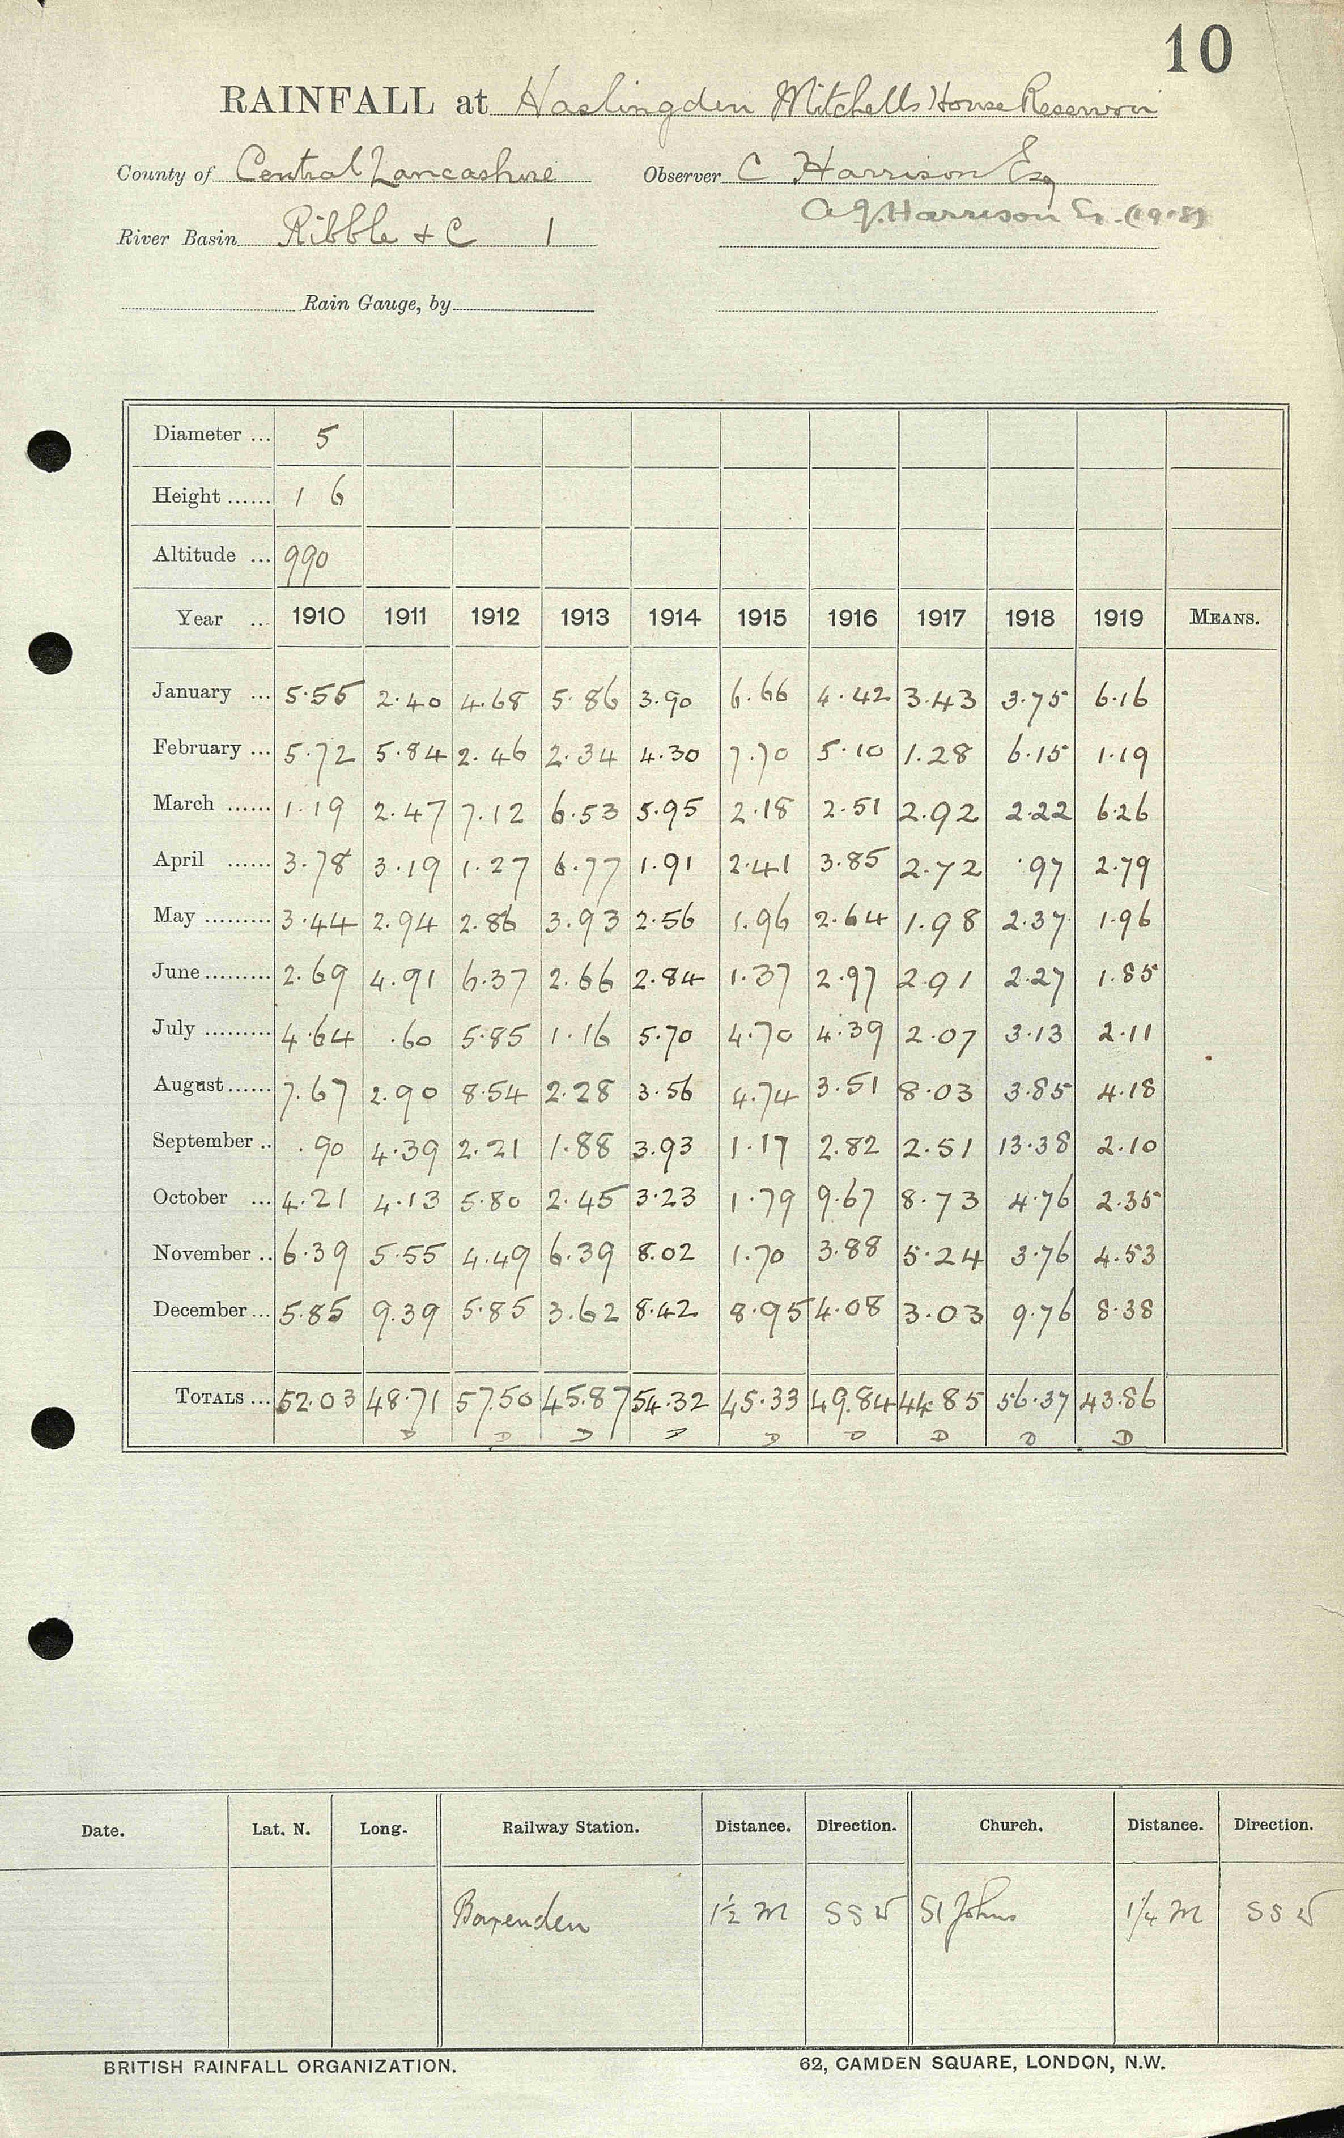 10
RAINFALL at Haslingden Mitchells House Reservoir
County of Central Lancashire Observer C Harrison Esq
A J. Harrison Esq. (1918)
River Basin Ribble & C 1
Rain Gauge, by
Diameter ... 5
Height ...... 1 6
Altitude ... 990
Year ... 1910 1911 1912 1913 1914 1915 1916 1917 1918 1919 MEANS.
January ... 5.55 2.40 4.68 5.86 3.90 6.66 4.42 3.43 3.75 6.16
February ... 5.72 5.84 2.46 2.34 4.30 7.70 5.10 1.28 6.15 1.19
March ...... 1.19 2.47 7.12 6.53 5.95 2.18 2.51 2.92 2.22 6.26
April ...... 3.78 3.19 1.27 6.77 1.91 2.41 3.85 2.72 .97 2.79
May ......... 3.44 2.94 2.86 3.93 2.56 1.96 2.64 1.98 2.37 1.96
June ......... 2.69 4.91 6.37 2.66 2.84 1.37 2.97 2.91 2.27 1.85
July ......... 4.64 .60 5.85 1.16 5.70 4.70 4.39 2.07 3.13 2.11
August ...... 7.67 2.90 8.54 2.28 3.56 4.74 3.51 8.03 3.85 4.18
September .. .90 4.39 2.21 1.88 3.93 1.17 2.82 2.51 13.38 2.10
October ... 4.21 4.13 5.80 2.45 3.23 1.79 9.67 8.73 4.76 2.35
November .. 6.39 5.55 4.49 6.39 8.02 1.70 3.88 5.24 3.76 4.53
December ... 5.85 9.39 5.85 3.62 8.42 8.95 4.08 3.03 9.76 8.38
TOTALS ... 52.03 48.71 57.50 45.87 54.32 45.33 49.84 44.85 56.37 43.86
D D D D D D D D D
Date. Lat. N. Long. Railway Station. Distance. Direction. Church. Distance. Direction.
Baxenden 1½ M SSW St Johns 1¼ M SSW
BRITISH RAINFALL ORGANIZATION. 62, CAMDEN SQUARE, LONDON, N.W.